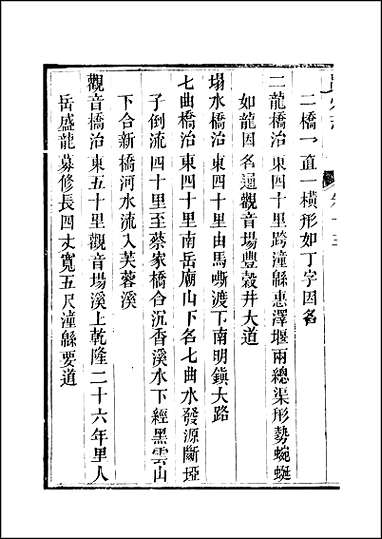 二橋一直一横形如丁字因名
二龍橋治東四十里跨潼緜惠澤堰兩總渠形勢蜿蜒
如龍因名通觀音場豐穀井大道
塌水橋治東四十里由馬嘶渡下南明鎮大路
七曲橋治東四十里南岳廟山下名七曲水發源斷埡
子倒流四十里至蔡家橋合沉香溪水下經黑雲山
下合新橋河水流入芙蓉溪
觀音橋治東五十里觀音場溪上乾隆二十六年里人
岳盛龍募修長四丈寬五尺潼緜要道